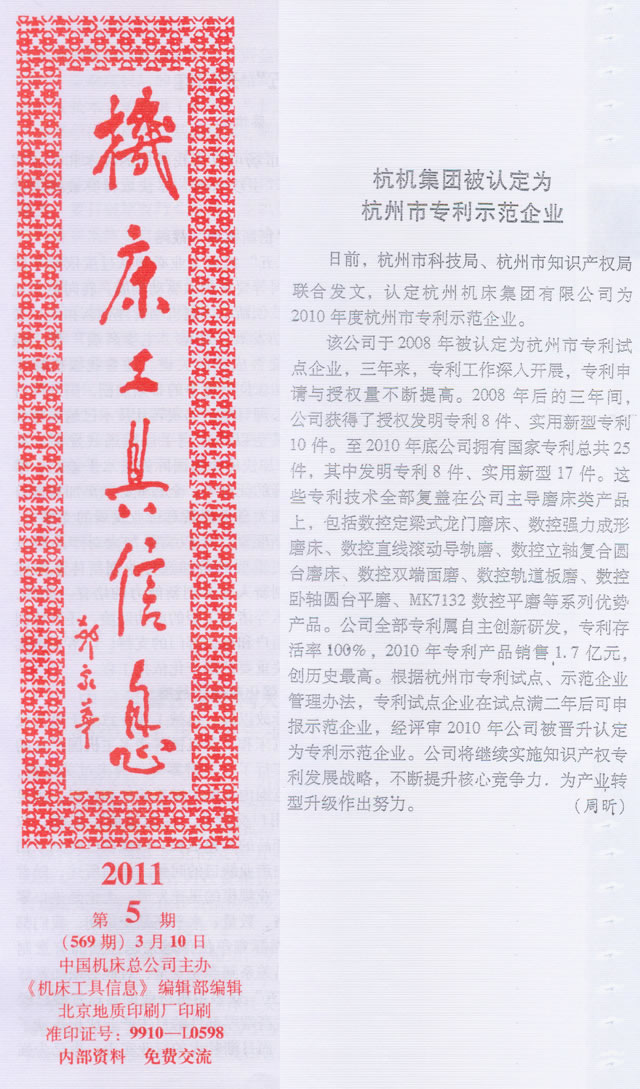 機床工具信息
郑京華
2011
第 5 期
（569 期）3 月 10 日
中国机床总公司主办
《机床工具信息》编辑部编辑
北京地质印刷厂印刷
准印证号：9910—L0598
内部资料　免费交流
杭机集团被认定为
杭州市专利示范企业
日前，杭州市科技局、杭州市知识产权局
联合发文，认定杭州机床集团有限公司为
2010 年度杭州市专利示范企业。
该公司于 2008 年被认定为杭州市专利试
点企业，三年来，专利工作深入开展，专利申
请与授权量不断提高。2008 年后的三年间，
公司获得了授权发明专利 8 件、实用新型专利
10 件。至 2010 年底公司拥有国家专利总共 25
件，其中发明专利 8 件、实用新型 17 件。这
些专利技术全部复盖在公司主导磨床类产品
上，包括数控定梁式龙门磨床、数控强力成形
磨床、数控直线滚动导轨磨、数控立轴复合圆
台磨床、数控双端面磨、数控轨道板磨、数控
卧轴圆台平磨、MK7132 数控平磨等系列优势
产品。公司全部专利属自主创新研发，专利存
活率 100%，2010 年专利产品销售 1.7 亿元，
创历史最高。根据杭州市专利试点、示范企业
管理办法，专利试点企业在试点满二年后可申
报示范企业，经评审 2010 年公司被晋升认定
为专利示范企业。公司将继续实施知识产权专
利发展战略，不断提升核心竞争力．为产业转
型升级作出努力。（周昕）